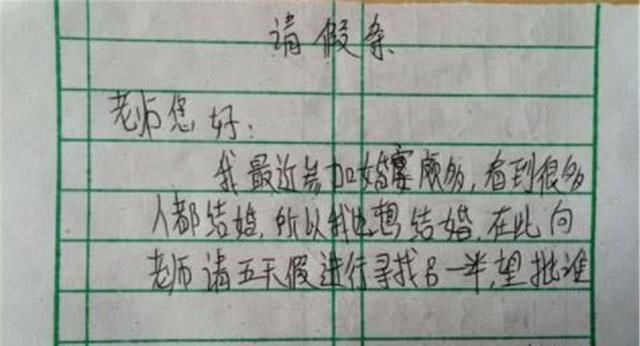 请假条
老师您好：
我最近参加婚宴颇多,看到很多
人都结婚,所以我也想结婚,在此向
老师请五天假进行寻找另一半,望批准